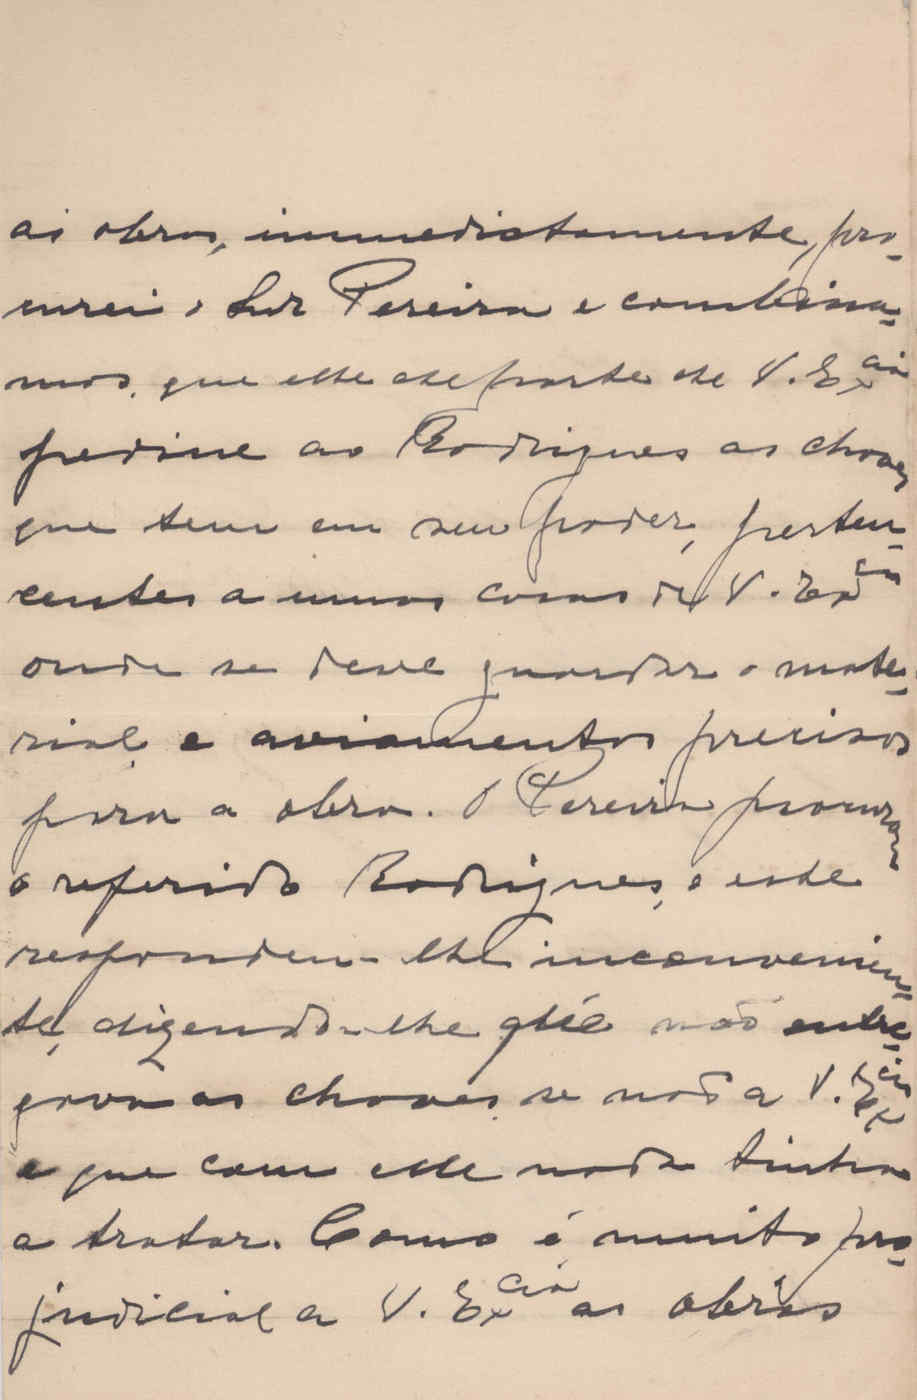 as obras, immediatamente, pro-
curei o Snr Pereira e combina-
mos, que elle de parte de V. Ex.cia
pedisse ao Rodrigues as chaves
que tem em seu poder, perten-
centes a umas casas de V. Ex.cia
onde se deve guardar o mate-
rial e aviamentos precisos
para a obra. O Pereira procurou
o referido Rodrigues, e este
respondeu-lhe inconvenien-
te, dizendo-lhe que não entre-
gava as chaves se não a V. Ex.cia
e que com elle nada tinha
a tratar. Como é muito pre-
judicial a V. Ex.cia as obras